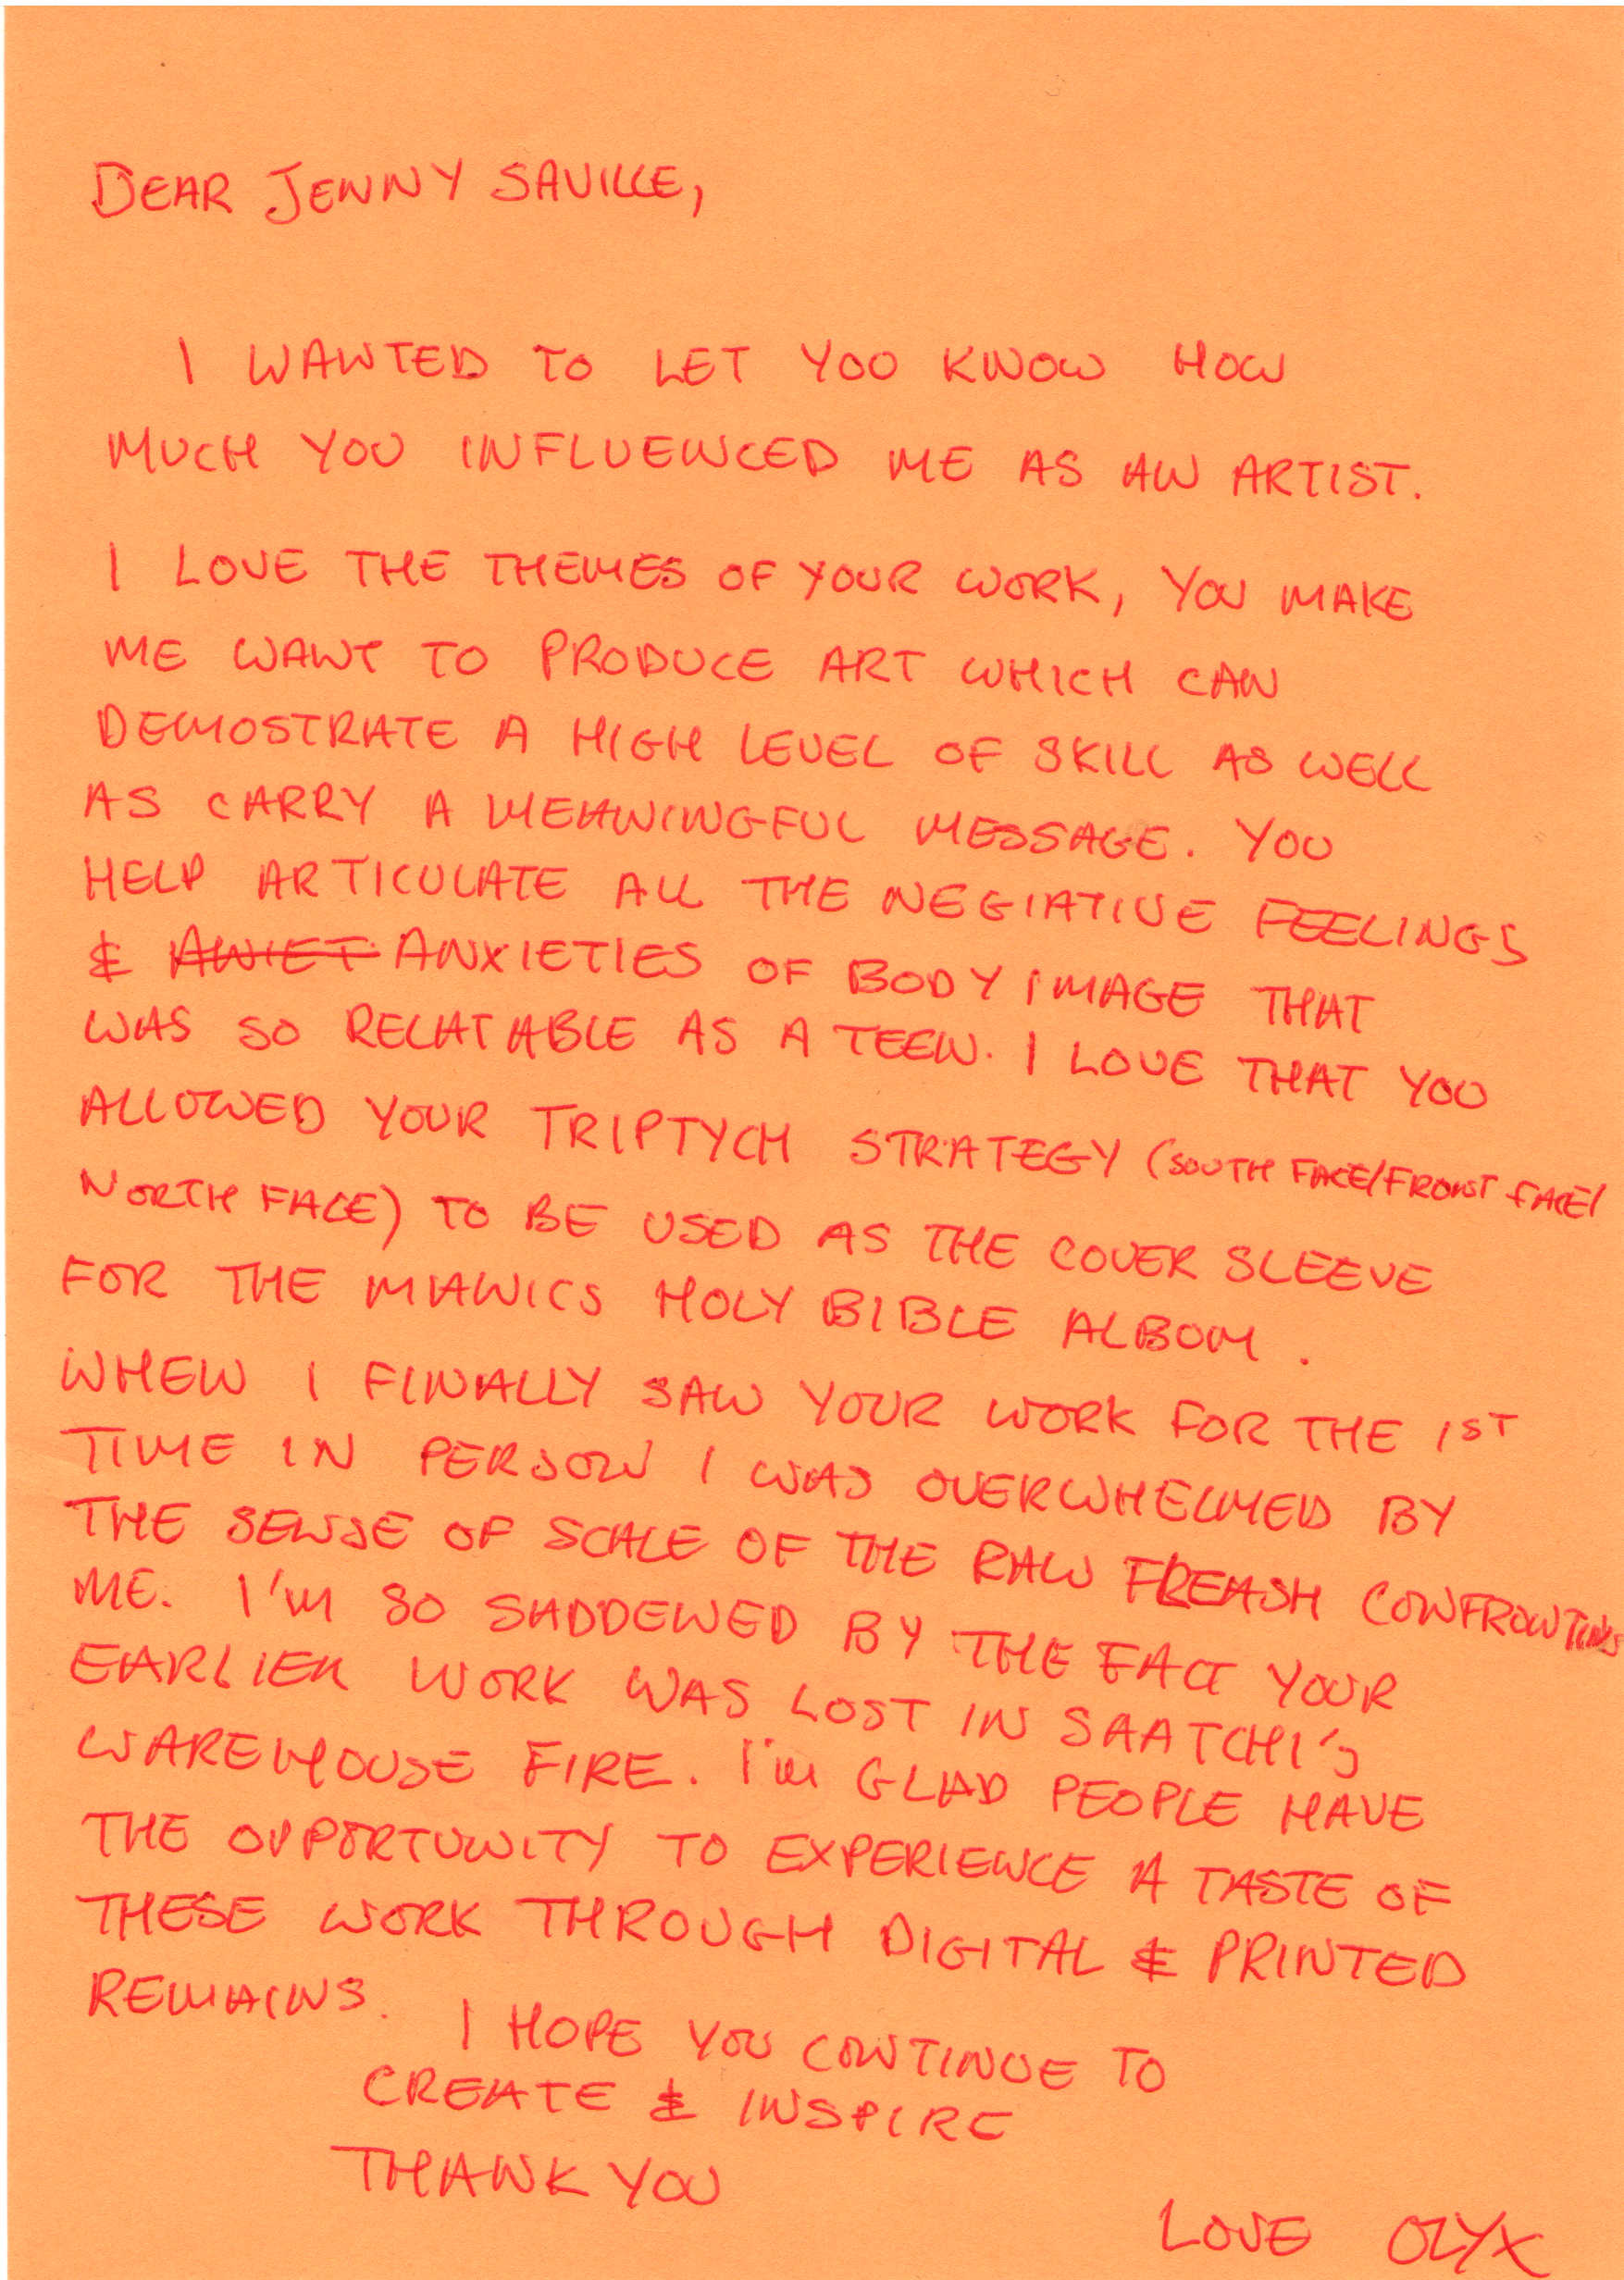 DEAR JENNY SAVILLE,
I WANTED TO LET YOU KNOW HOW
MUCH YOU INFLUENCED ME AS AN ARTIST.
I LOVE THE THEMES OF YOUR WORK, YOU MAKE
ME WANT TO PRODUCE ART WHICH CAN
DEMOSTRATE A HIGH LEVEL OF SKILL AS WELL
AS CARRY A MEANINGFUL MESSAGE. YOU
HELP ARTICULATE ALL THE NEGIATIVE FEELINGS
& ANIET ANXIETIES OF BODY IMAGE THAT
WAS SO RELATABLE AS A TEEN. I LOVE THAT YOU
ALLOWED YOUR TRIPTYCH STRATEGY (SOUTH FACE/FRONT FACE/
NORTH FACE) TO BE USED AS THE COVER SLEEVE
FOR THE MANICS HOLY BIBLE ALBOM.
WHEN I FINALLY SAW YOUR WORK FOR THE 1ST
TIME IN PERSON I WAS OVERWHELMED BY
THE SENSE OF SCALE OF THE RAW FLEASH CONFRONTING
ME. I'M SO SADDENED BY THE FACT YOUR
EARLIER WORK WAS LOST IN SAATCHI'S
WAREHOUSE FIRE. I'M GLAD PEOPLE HAVE
THE OPPORTUNITY TO EXPERIENCE A TASTE OF
THESE WORK THROUGH DIGITAL & PRINTED
REMAINS.
I HOPE YOU CONTINUE TO
CREATE & INSPIRE
THANK YOU
LOVE OLYX